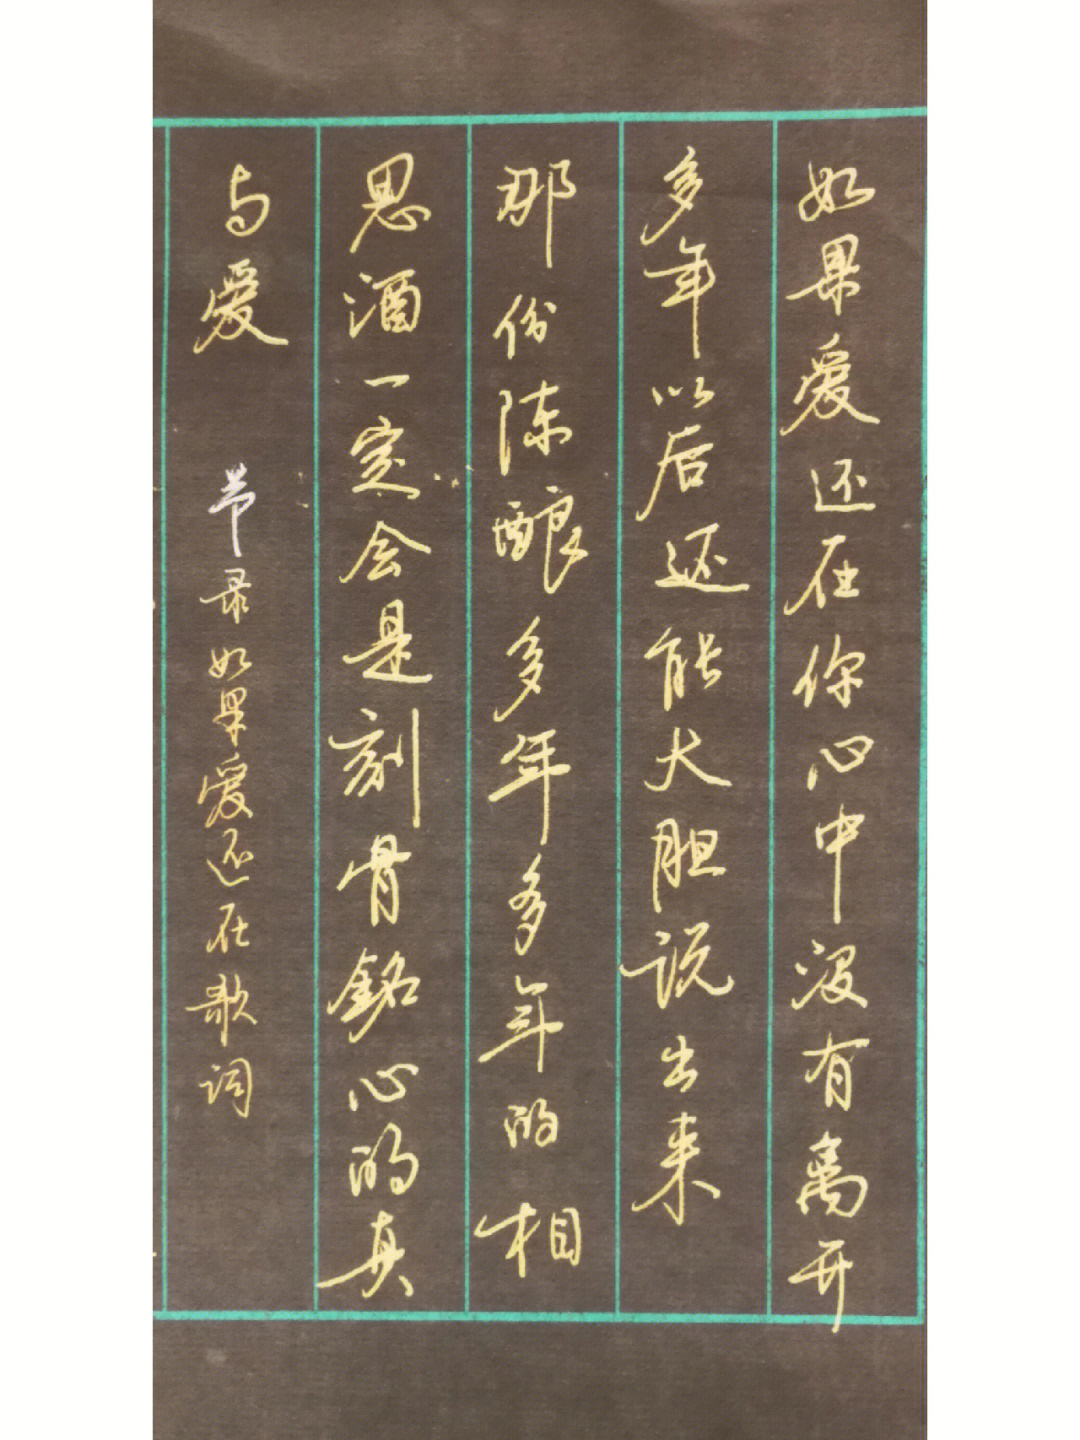 如果爱还在你心中没有离开
多年以后还能大胆说出来
那份陈酿多年多年的相
思酒一定会是刻骨銘心的真
与爱
节录如果爱还在歌词